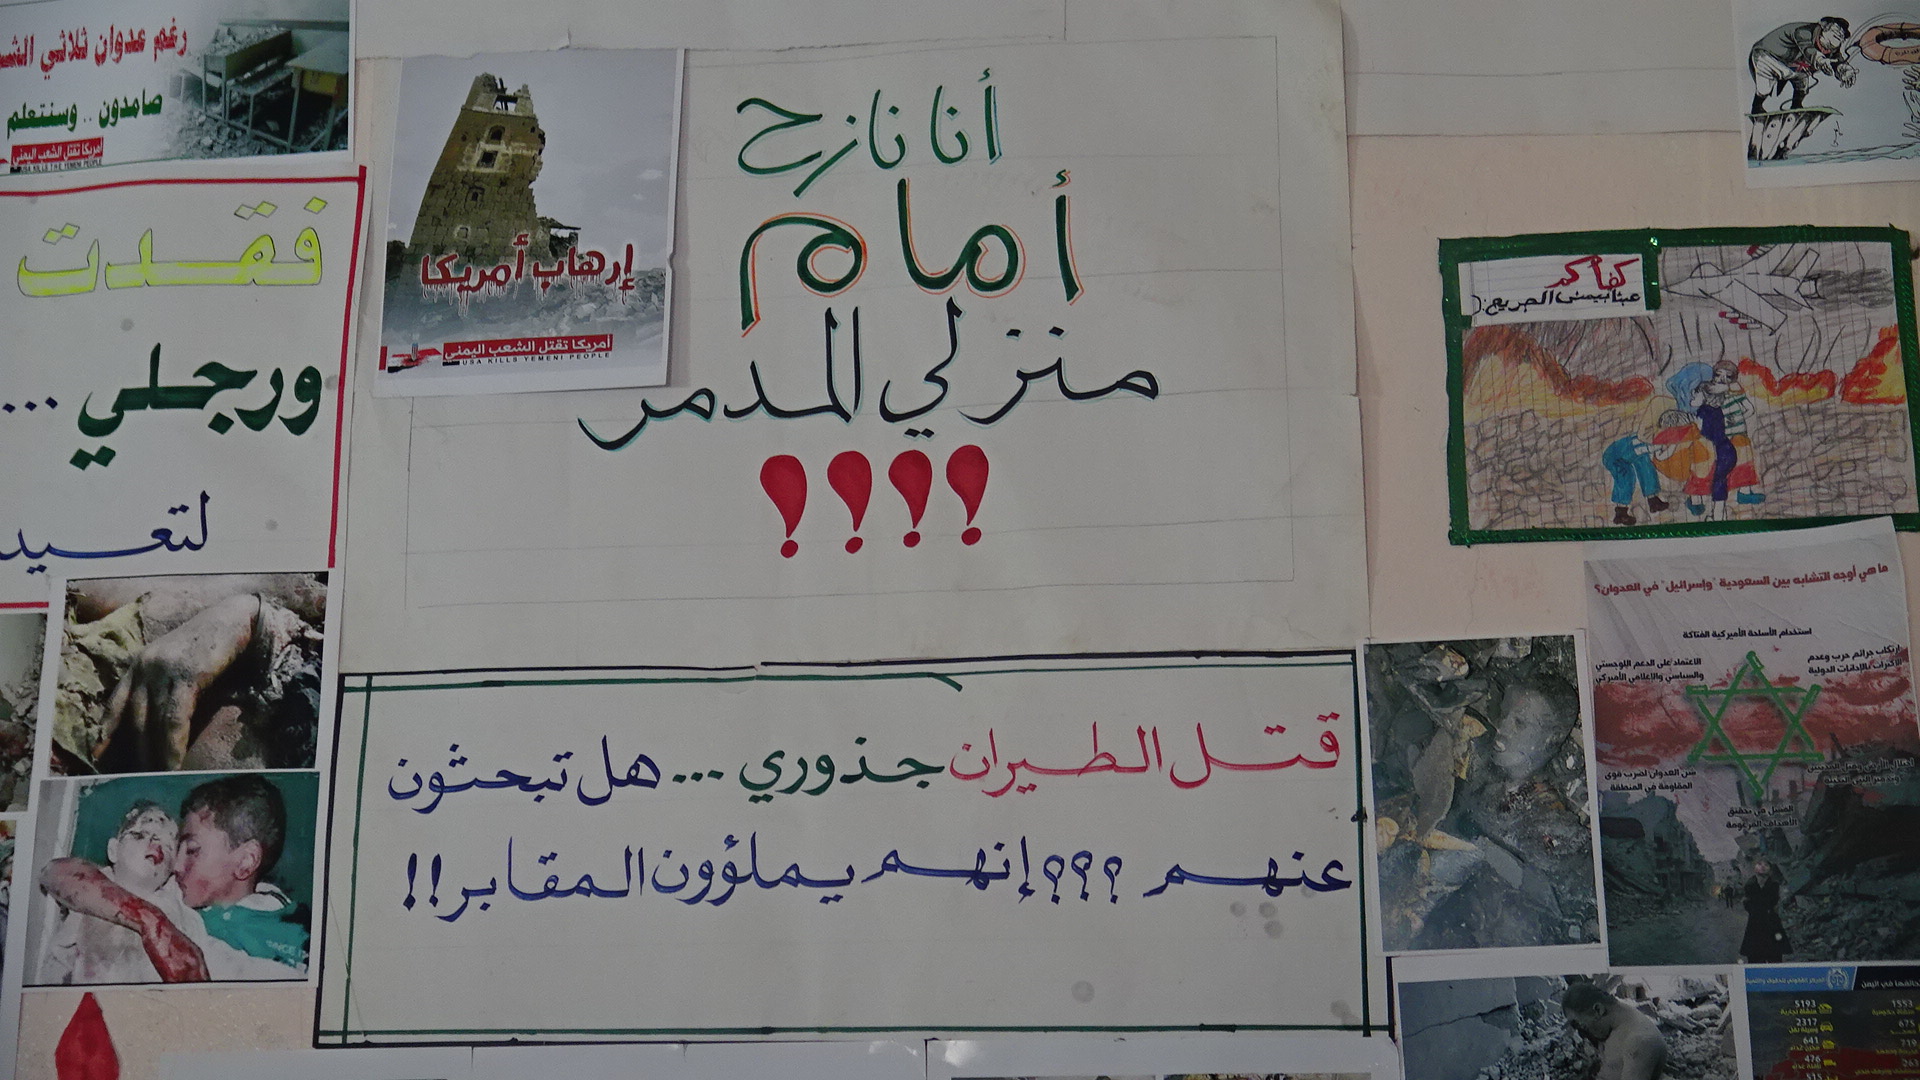 رغم عدوان ثلاثي الشـ
صامدون .. وسنتعلم
أمريكا تقتل الشعب اليمني
USA KILLS THE YEMENI PEOPLE
فقدت
ورجلي ...
لتعيد
إرهاب أمريكا
أمريكا تقتل الشعب اليمني
USA KILLS YEMENI PEOPLE
أنا نازح
أمام
منزلي المدمر
!!!!
قتل الطيران جذوري ... هل تبحثون
عنهم ؟؟؟ إنهم يملؤون المقابر !!
كفاكم
عبثا بيمني الجريح
ما هي أوجه التشابه بين السعودية "وإسرائيل" في العدوان؟
استخدام الأسلحة الأميركية الفتاكة
ارتكاب جرائم حرب وعدم
الاكتراث بالإدانات الدولية
الاعتماد على الدعم اللوجستي
والسياسي والإعلامي الأميركي
شن العدوان لضرب قوى
المقاومة في المنطقة
الفشل في تحقيق
الأهداف المزعومة
5193
2317
641
476
515
1553
675
719
263